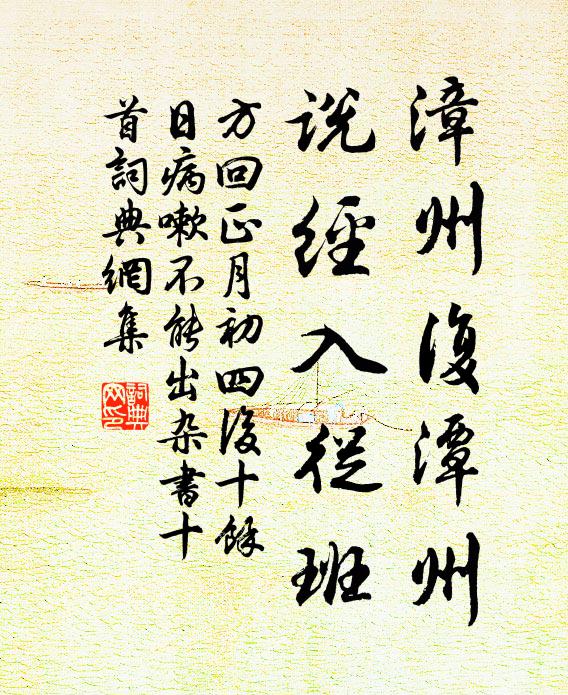 漳州復潭州
説經入從班
方回正月初四後十餘
日病嗽不能出杂書十
首詞典網集
詞典网印